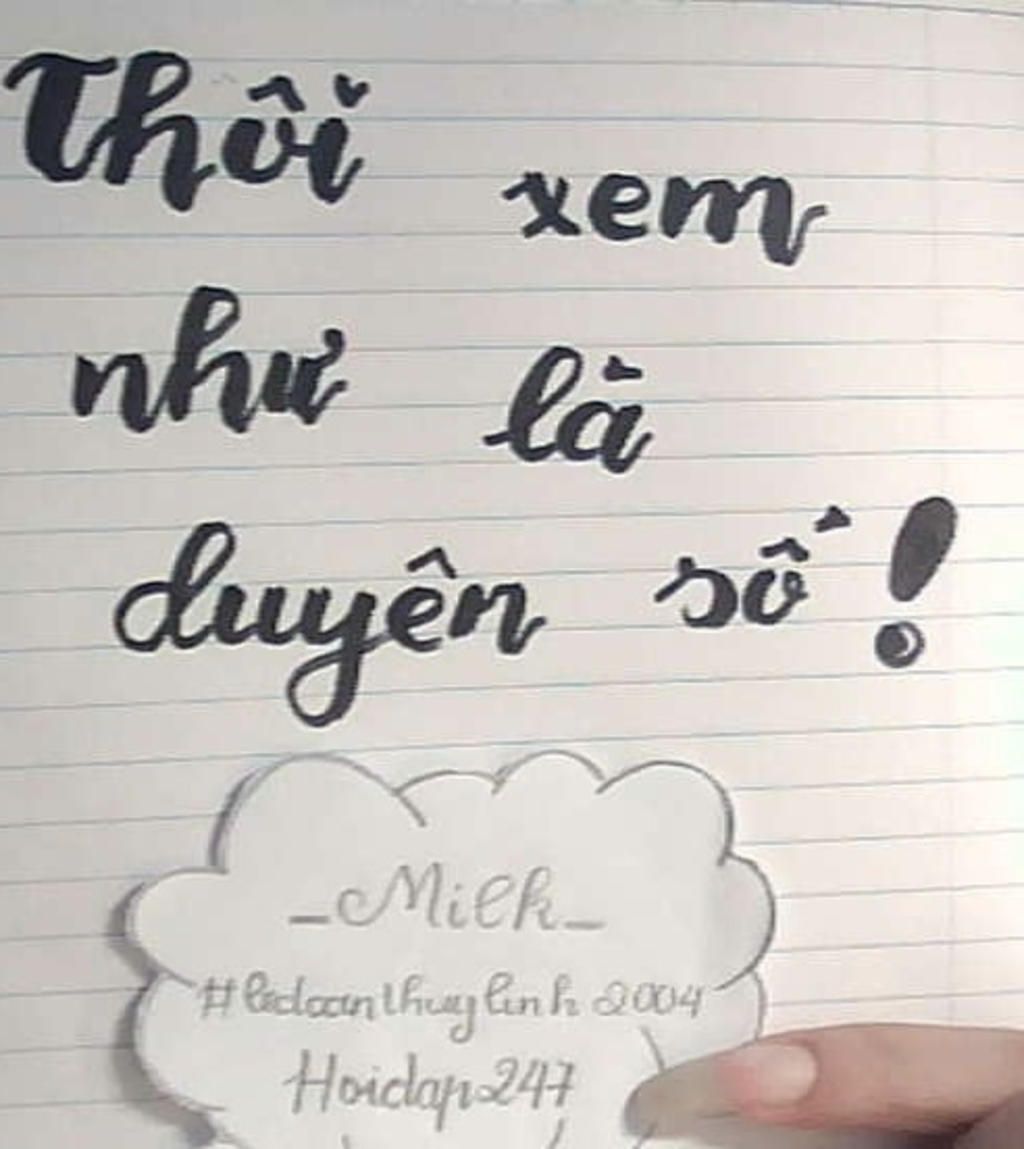 Thôi xem
như là
duyên số!
_Milk_
#ledoanthuylinh2004
Hoidap247